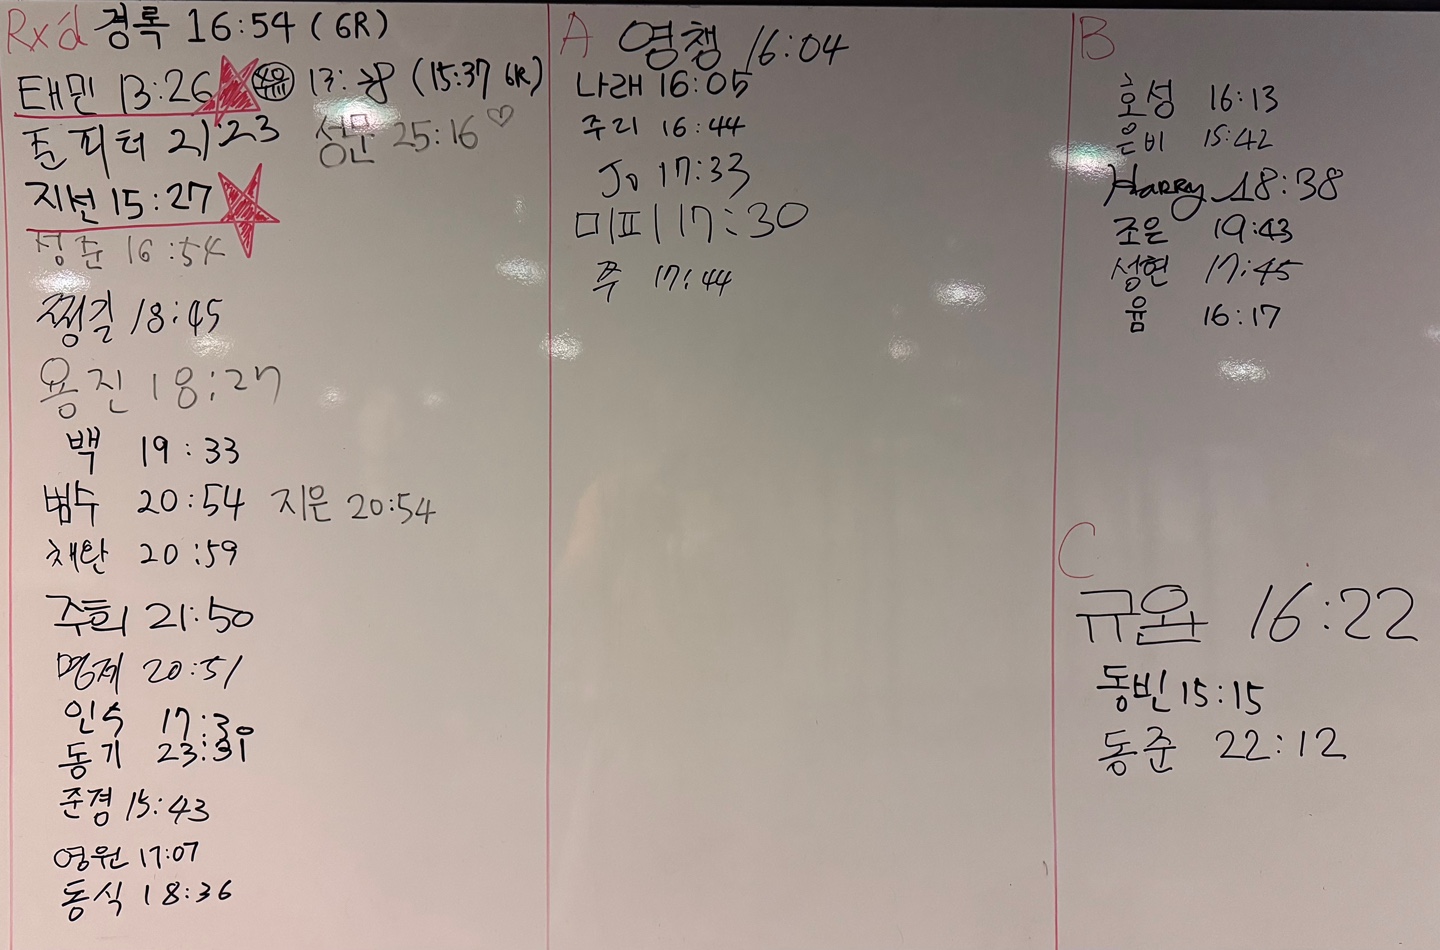 Rx'd 경록 16:54 (6R)
태민 13:26 13: (15:37 6R)
존 피터 21:23 성문 25:16 ♡
지선 15:27
성준 16:54
찡길 18:45
용진 18:27
백 19:33
범수 20:54 지은 20:54
채완 20:59
주희 21:50
명제 20:51
인수 17:30
동기 23:31
준경 15:43
영원 17:07
동식 18:36
A 영챙 16:04
나래 16:05
주리 16:44
Jo 17:33
미피 17:30
쭈 17:44
B
호성 16:13
은비 15:42
Harry 18:38
조은 19:43
성현 17:45
윰 16:17
C
규완 16:22
동빈 15:15
동준 22:12